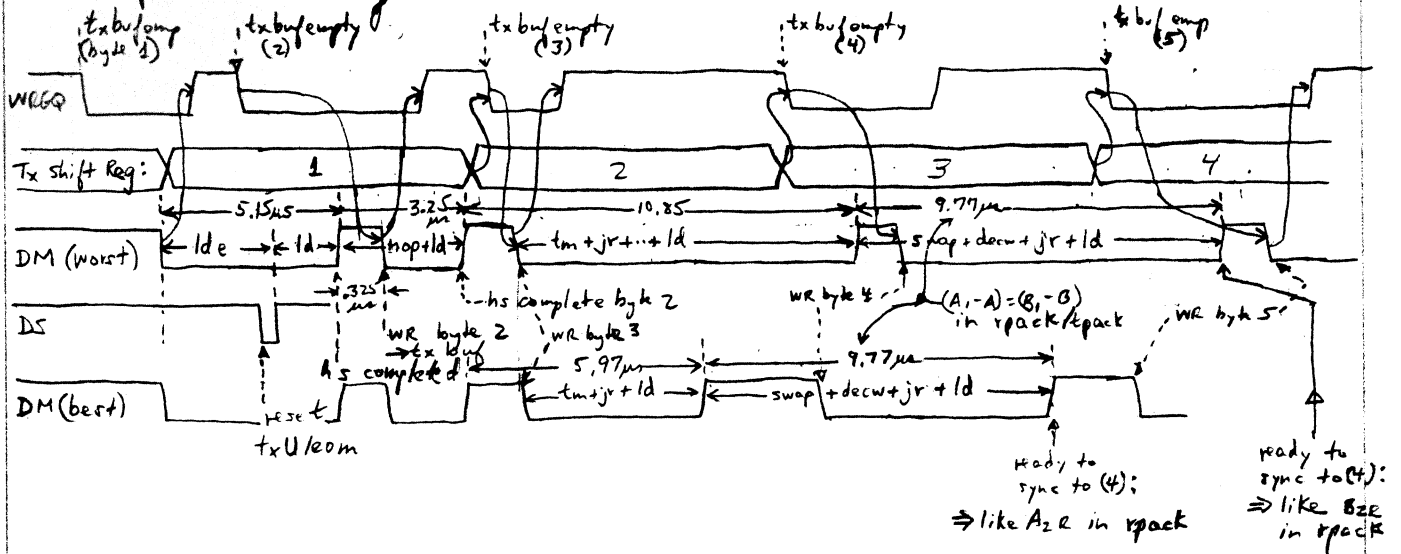 txbufemp
(byte 1)
txbufempty
(2)
txbufempty
(3)
txbufempty
(4)
txbufemp
(5)
WRGQ
Tx shift Reg:
1
2
3
4
5.15µs
3.25
µs
10.85
9.77µs
DM (worst)
lde
ld
nop+ld
tm+jr+..+ld
swap+decw+jr+ld
.325
µs
hs complete byte 2
WR byte 4
(A,-A)=(B,-B)
in rpack/tpack
WR byte 5
DS
WR byte 2
→tx buf
WR byte 3
hs completed
5.97µs
9.77µs
DM (best)
tm+jr+ld
swap+decw+jr+ld
reset
txU/eom
ready to
sync to (4):
⇒ like A2R in rpack
ready to
sync to (4):
⇒ like B2R
in rpack